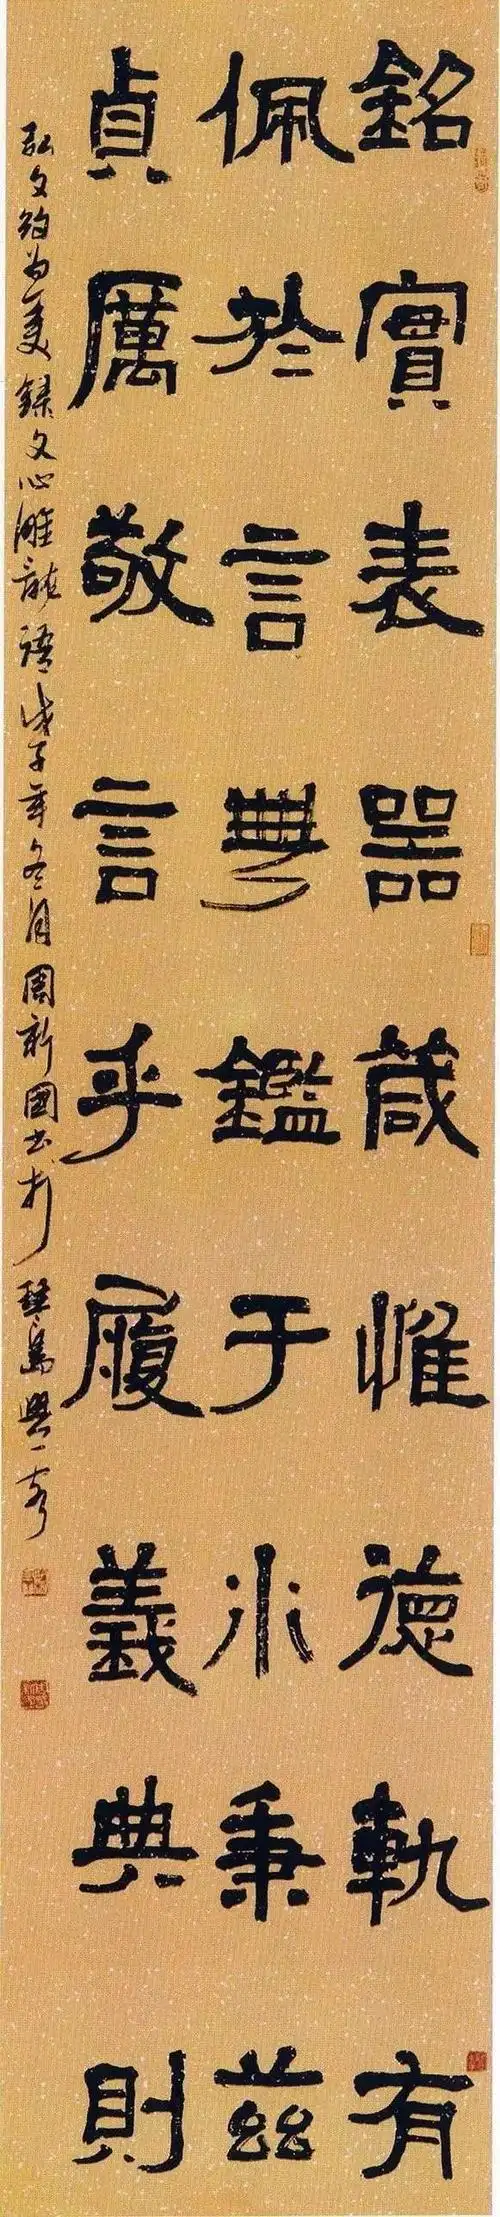 銘實表器箴惟德軌有
佩於言無鑑于水秉茲
貞厲敬言乎履義典則
弘文約为美錄文心雕龍語戊子年冬月周新國书於琴島一斋